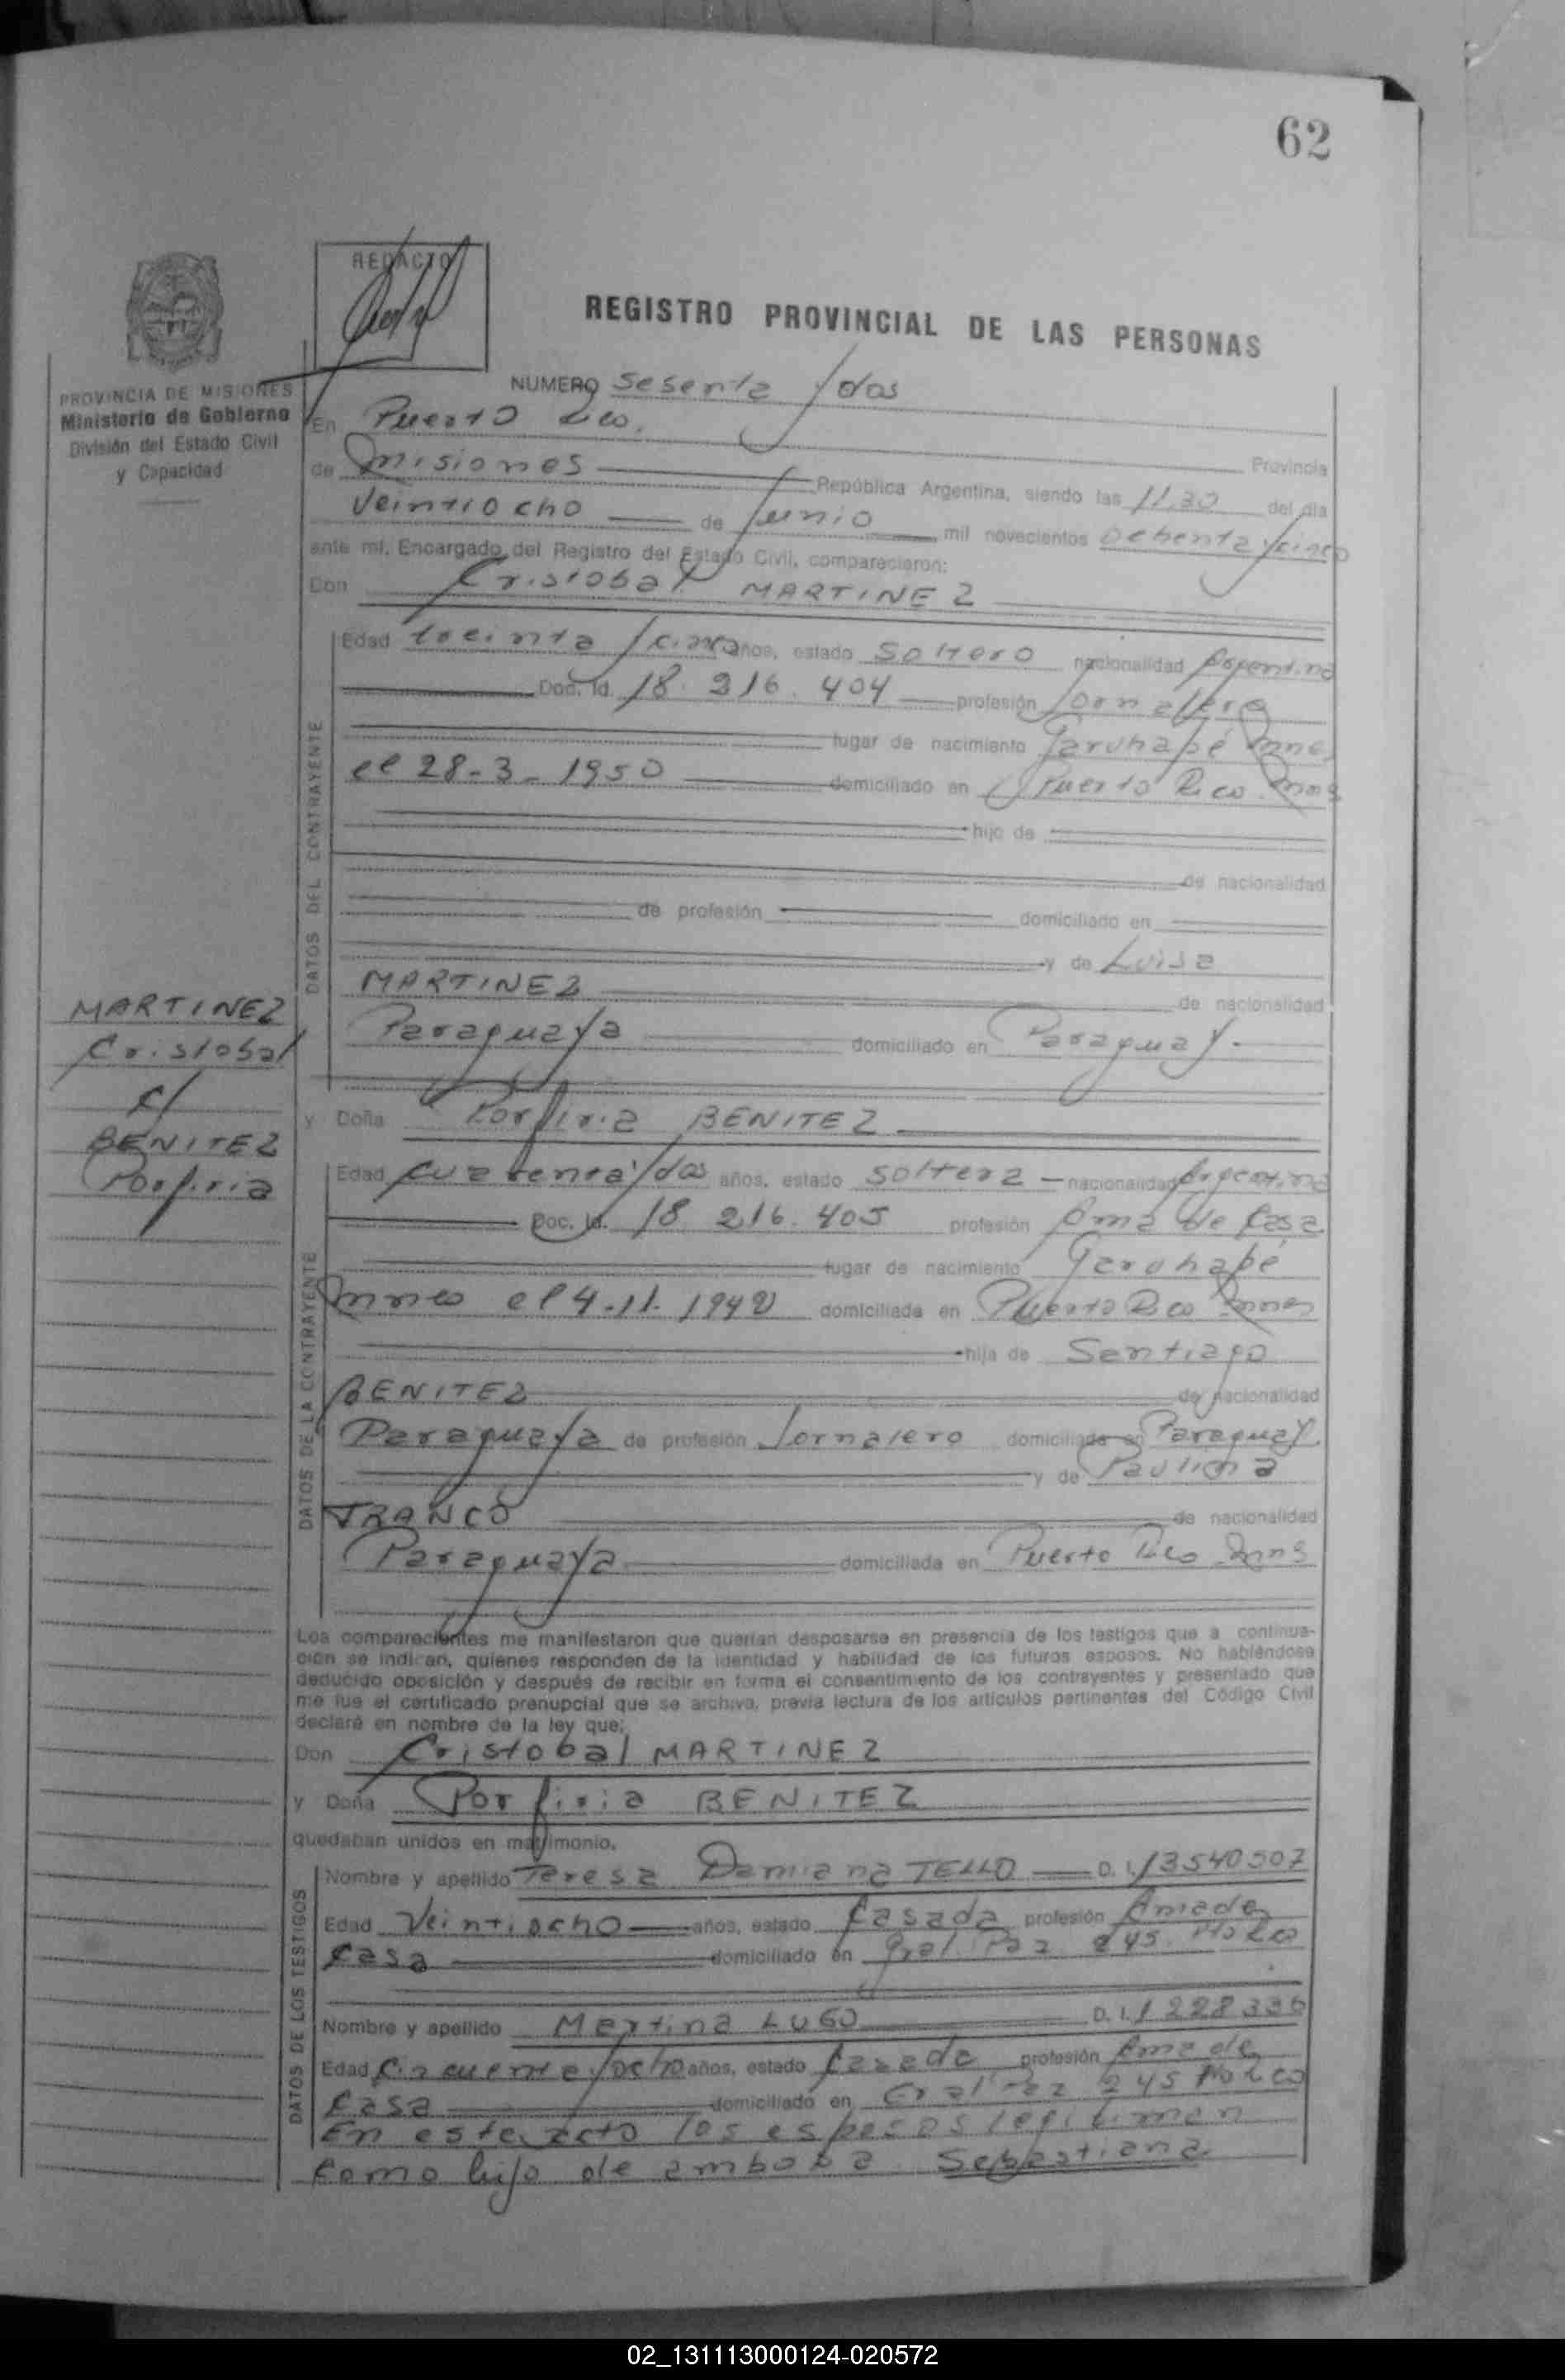 62
REDACTO
REGISTRO PROVINCIAL DE LAS PERSONAS
PROVINCIA DE MISIONES
Ministerio de Gobierno
División del Estado Civil
y Capacidad
NUMERO Sesenta y dos
En Puerto Rico.
Provincia
de Misiones República Argentina, siendo las 11,30 del día
Veintiocho de Junio mil novecientos Ochenta y cinco
ante mí, Encargado del Registro del Estado Civil, comparecieron:
Don Cristobal MARTINEZ
DATOS DEL CONTRAYENTE
Edad treinta y cinco años, estado Soltero nacionalidad Argentina
Doc. Id. 18.216.404 profesión Jornalero
lugar de nacimiento Garuhapé Mnes
el 28-3-1950 domiciliado en Puerto Rico Mnes
hijo de
de nacionalidad
de profesión domiciliado en
y de Luisa
MARTINEZ de nacionalidad
Paraguaya domiciliado en Paraguay.
MARTINEZ
Cristobal
c/
BENITEZ
Porfiria
y Doña Porfiria BENITEZ
DATOS DE LA CONTRAYENTE
Edad cuarenta y dos años, estado Soltera nacionalidad Argentina
Doc. Id. 18 216.405 profesión Ama de Casa
lugar de nacimiento Garuhapé
Mnes el 4.11.1942 domiciliada en Puerto Rico Mnes
hija de Santiago
BENITEZ de nacionalidad
Paraguaya de profesión Jornalero domiciliado en Paraguay
y de Paulina
FRANCO de nacionalidad
Paraguaya domiciliada en Puerto Rico Mns
Los comparecientes me manifestaron que querían desposarse en presencia de los testigos que a continua-
ción se indican, quienes responden de la identidad y habilidad de los futuros esposos. No habiéndose
deducido oposición y después de recibir en forma el consentimiento de los contrayentes y presentado que
me fue el certificado prenupcial que se archiva, previa lectura de los artículos pertinentes del Código Civil
declaré en nombre de la ley que:
Don Cristobal MARTINEZ
y Doña Porfiria BENITEZ
quedaban unidos en matrimonio.
DATOS DE LOS TESTIGOS
Nombre y apellido Teresa Damiana TELLO D. I. 13540507
Edad Veintiocho años, estado Casada profesión Ama de
Casa domiciliado en Gral. Paz 245
Nombre y apellido Martina LUGO D. I. 1228336
Edad Cincuenta y ocho años, estado Casada profesión Ama de
Casa domiciliado en Gral Paz 245
En este acto los esposos legitiman
como hijo de ambos a Sebastiana
02_131113000124-020572